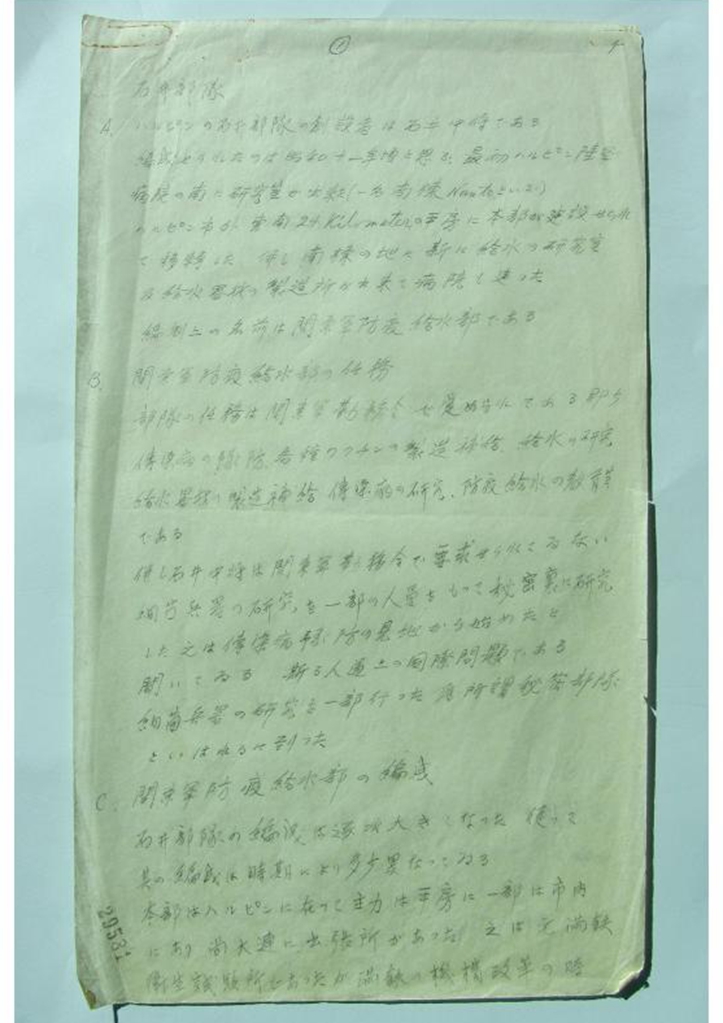 ①
石井部隊
A. ハルピンの石井部隊の創設者は石井中将である
編成せられたのは昭和十一年頃と思ふ、最初ハルピン陸軍
病院の南に研究室が出来(一名南棟 といふ)
ハルピン市が東南24 Kilometerの平房に本部が建設せられ
て移転した 併し南棟の地に新に給水の研究室
及給水器材の製造所が出来て病院と違った
編制上の名前は関東軍防疫給水部である
B. 関東軍防疫給水部の任務
部隊の任務は関東軍勤務令 である即ち
傳染病の豫防、各種ワクチンの製造補給、給水の研究
給水器材の製造補給 傳染病の研究、防疫給水の教育
である
併し石井中将は関東軍勤務令で要求せられてゐない
細菌兵器の研究を一部の人員をもって秘密裏に研究
した 之は傳染病豫防の見地から始めたと
聞いてゐる 斯る人道上の国際問題である
細菌兵器の研究を一部行った為所謂秘密部隊
といはれるに到った
C. 関東軍防疫給水部の編成
石井部隊の編成は逐次大きくなった 従って
其の編成は時期により多少異なってゐる
本部はハルピンに在って主力は平房に一部は市内
にあり尚大連に出張所があった 之は元満鉄
衛生試験所であったが満鉄の機構改革の時
29531